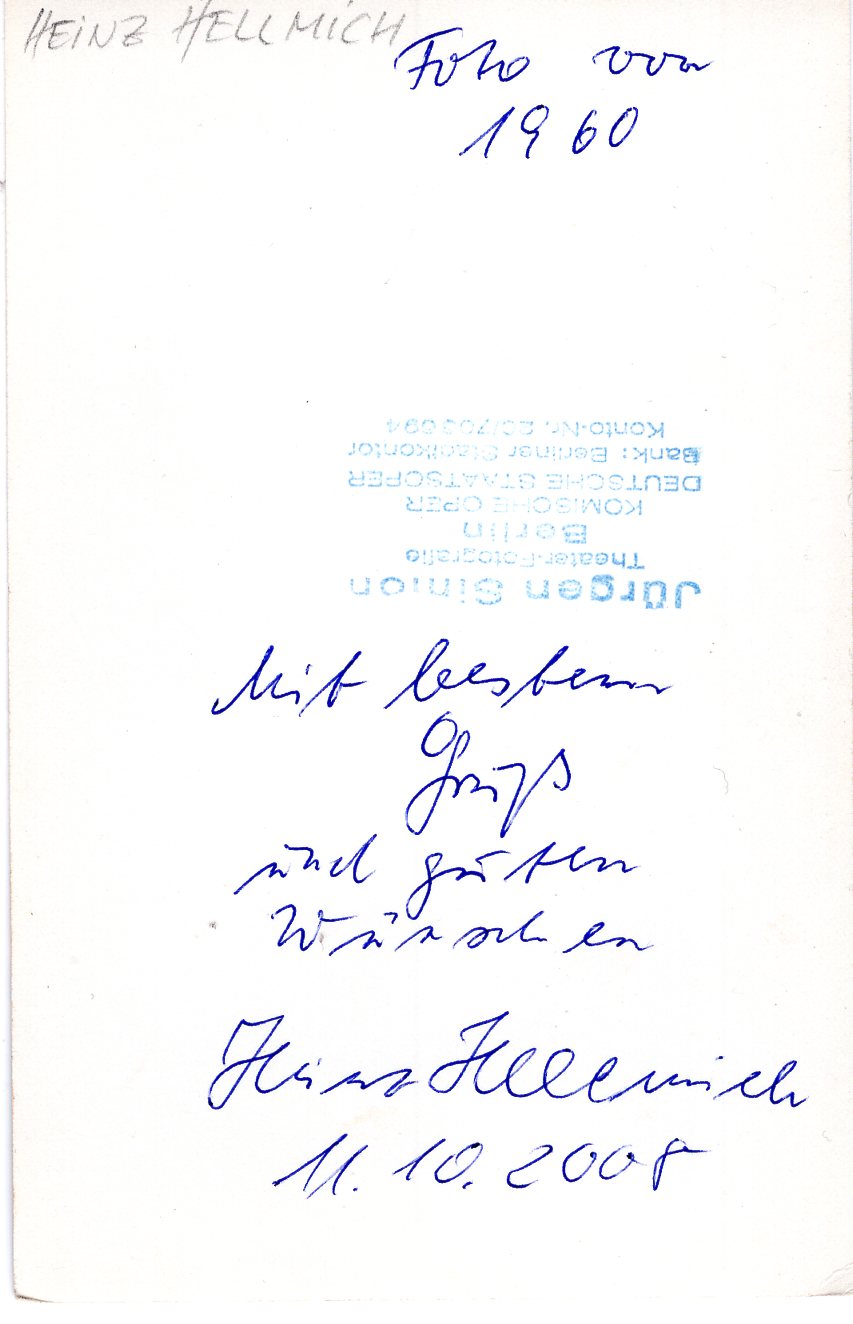 HEINZ HELLMICH
Foto von
1960
Jürgen Simon
Theater-Fotografie
Berlin
KOMISCHE OPER
DEUTSCHE STAATSOPER
Bank: Berliner Stadtkontor
Konto-Nr. 20/703094
Mit bestem
Gruß
und guten
Wünschen
Heinz Hellmich
11.10.2008